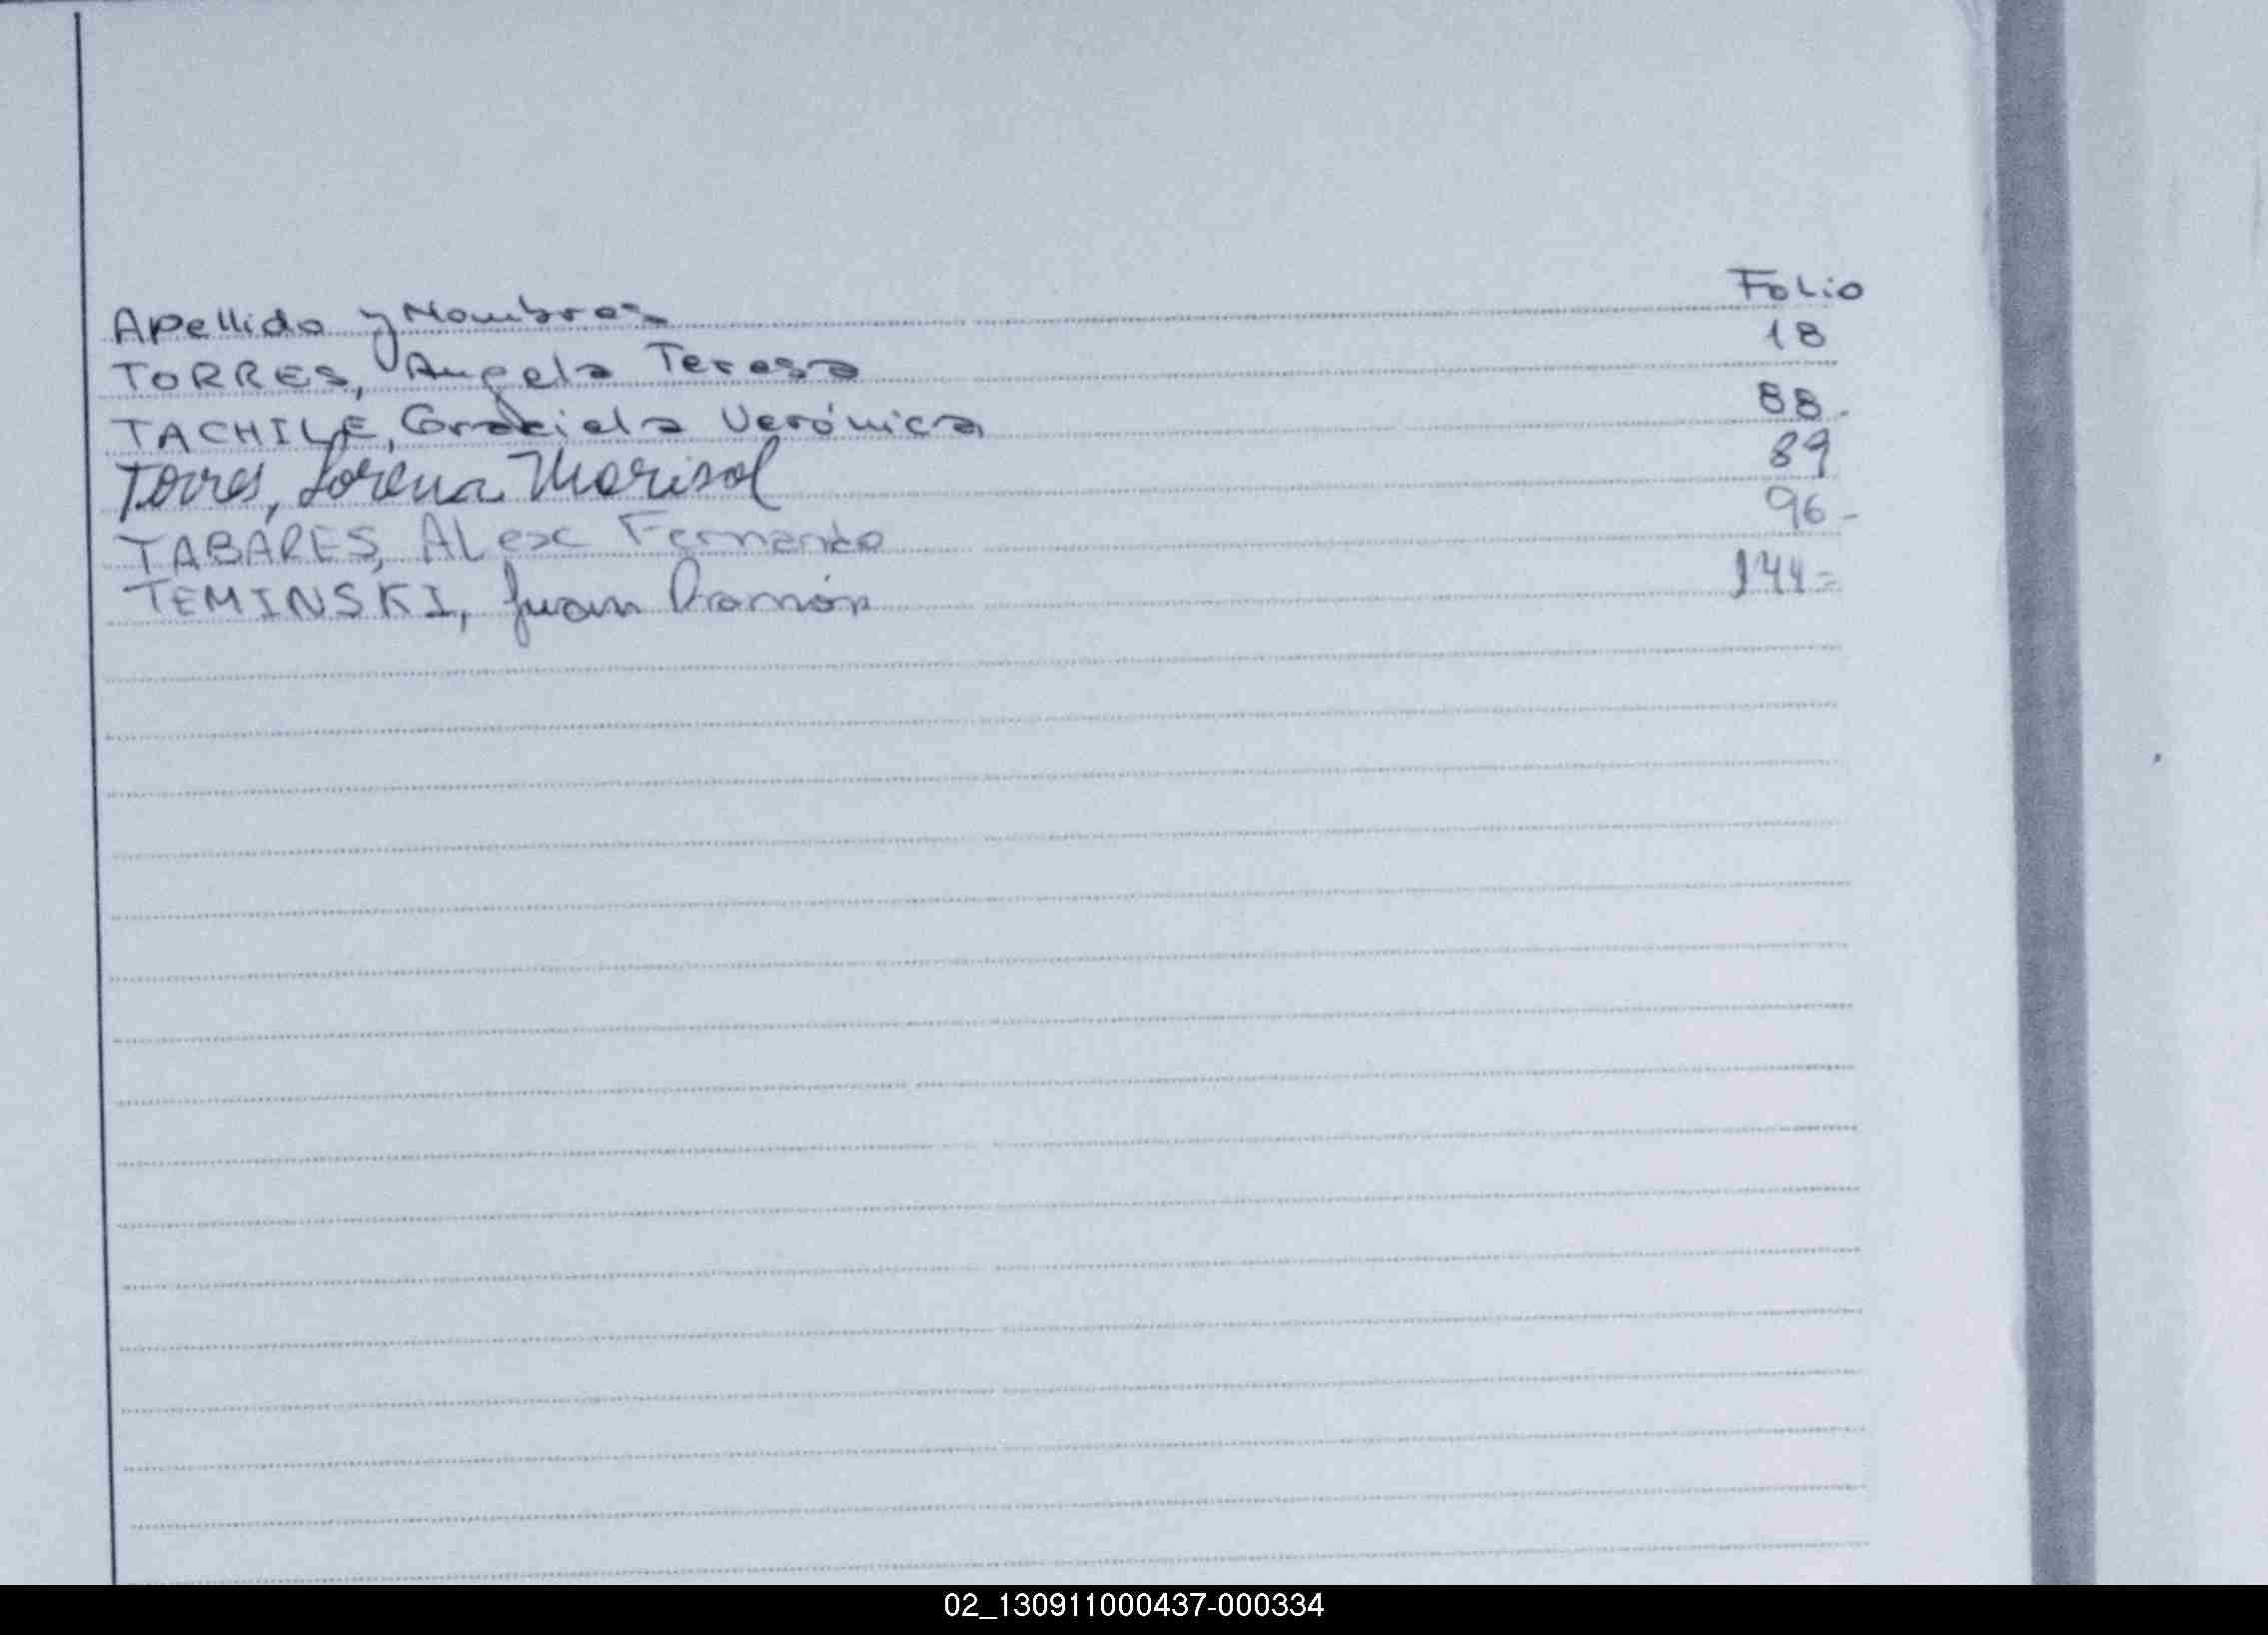 Apellido y Nombres Folio
TORRES, Angela Teresa 18
TACHILE, Graciela Verónica 88.
Torres, Lorena Marisol 89
TABARES, Alex Fernando 96-
TEMINSKI, Juan Ramón 144=
02_130911000437-000334